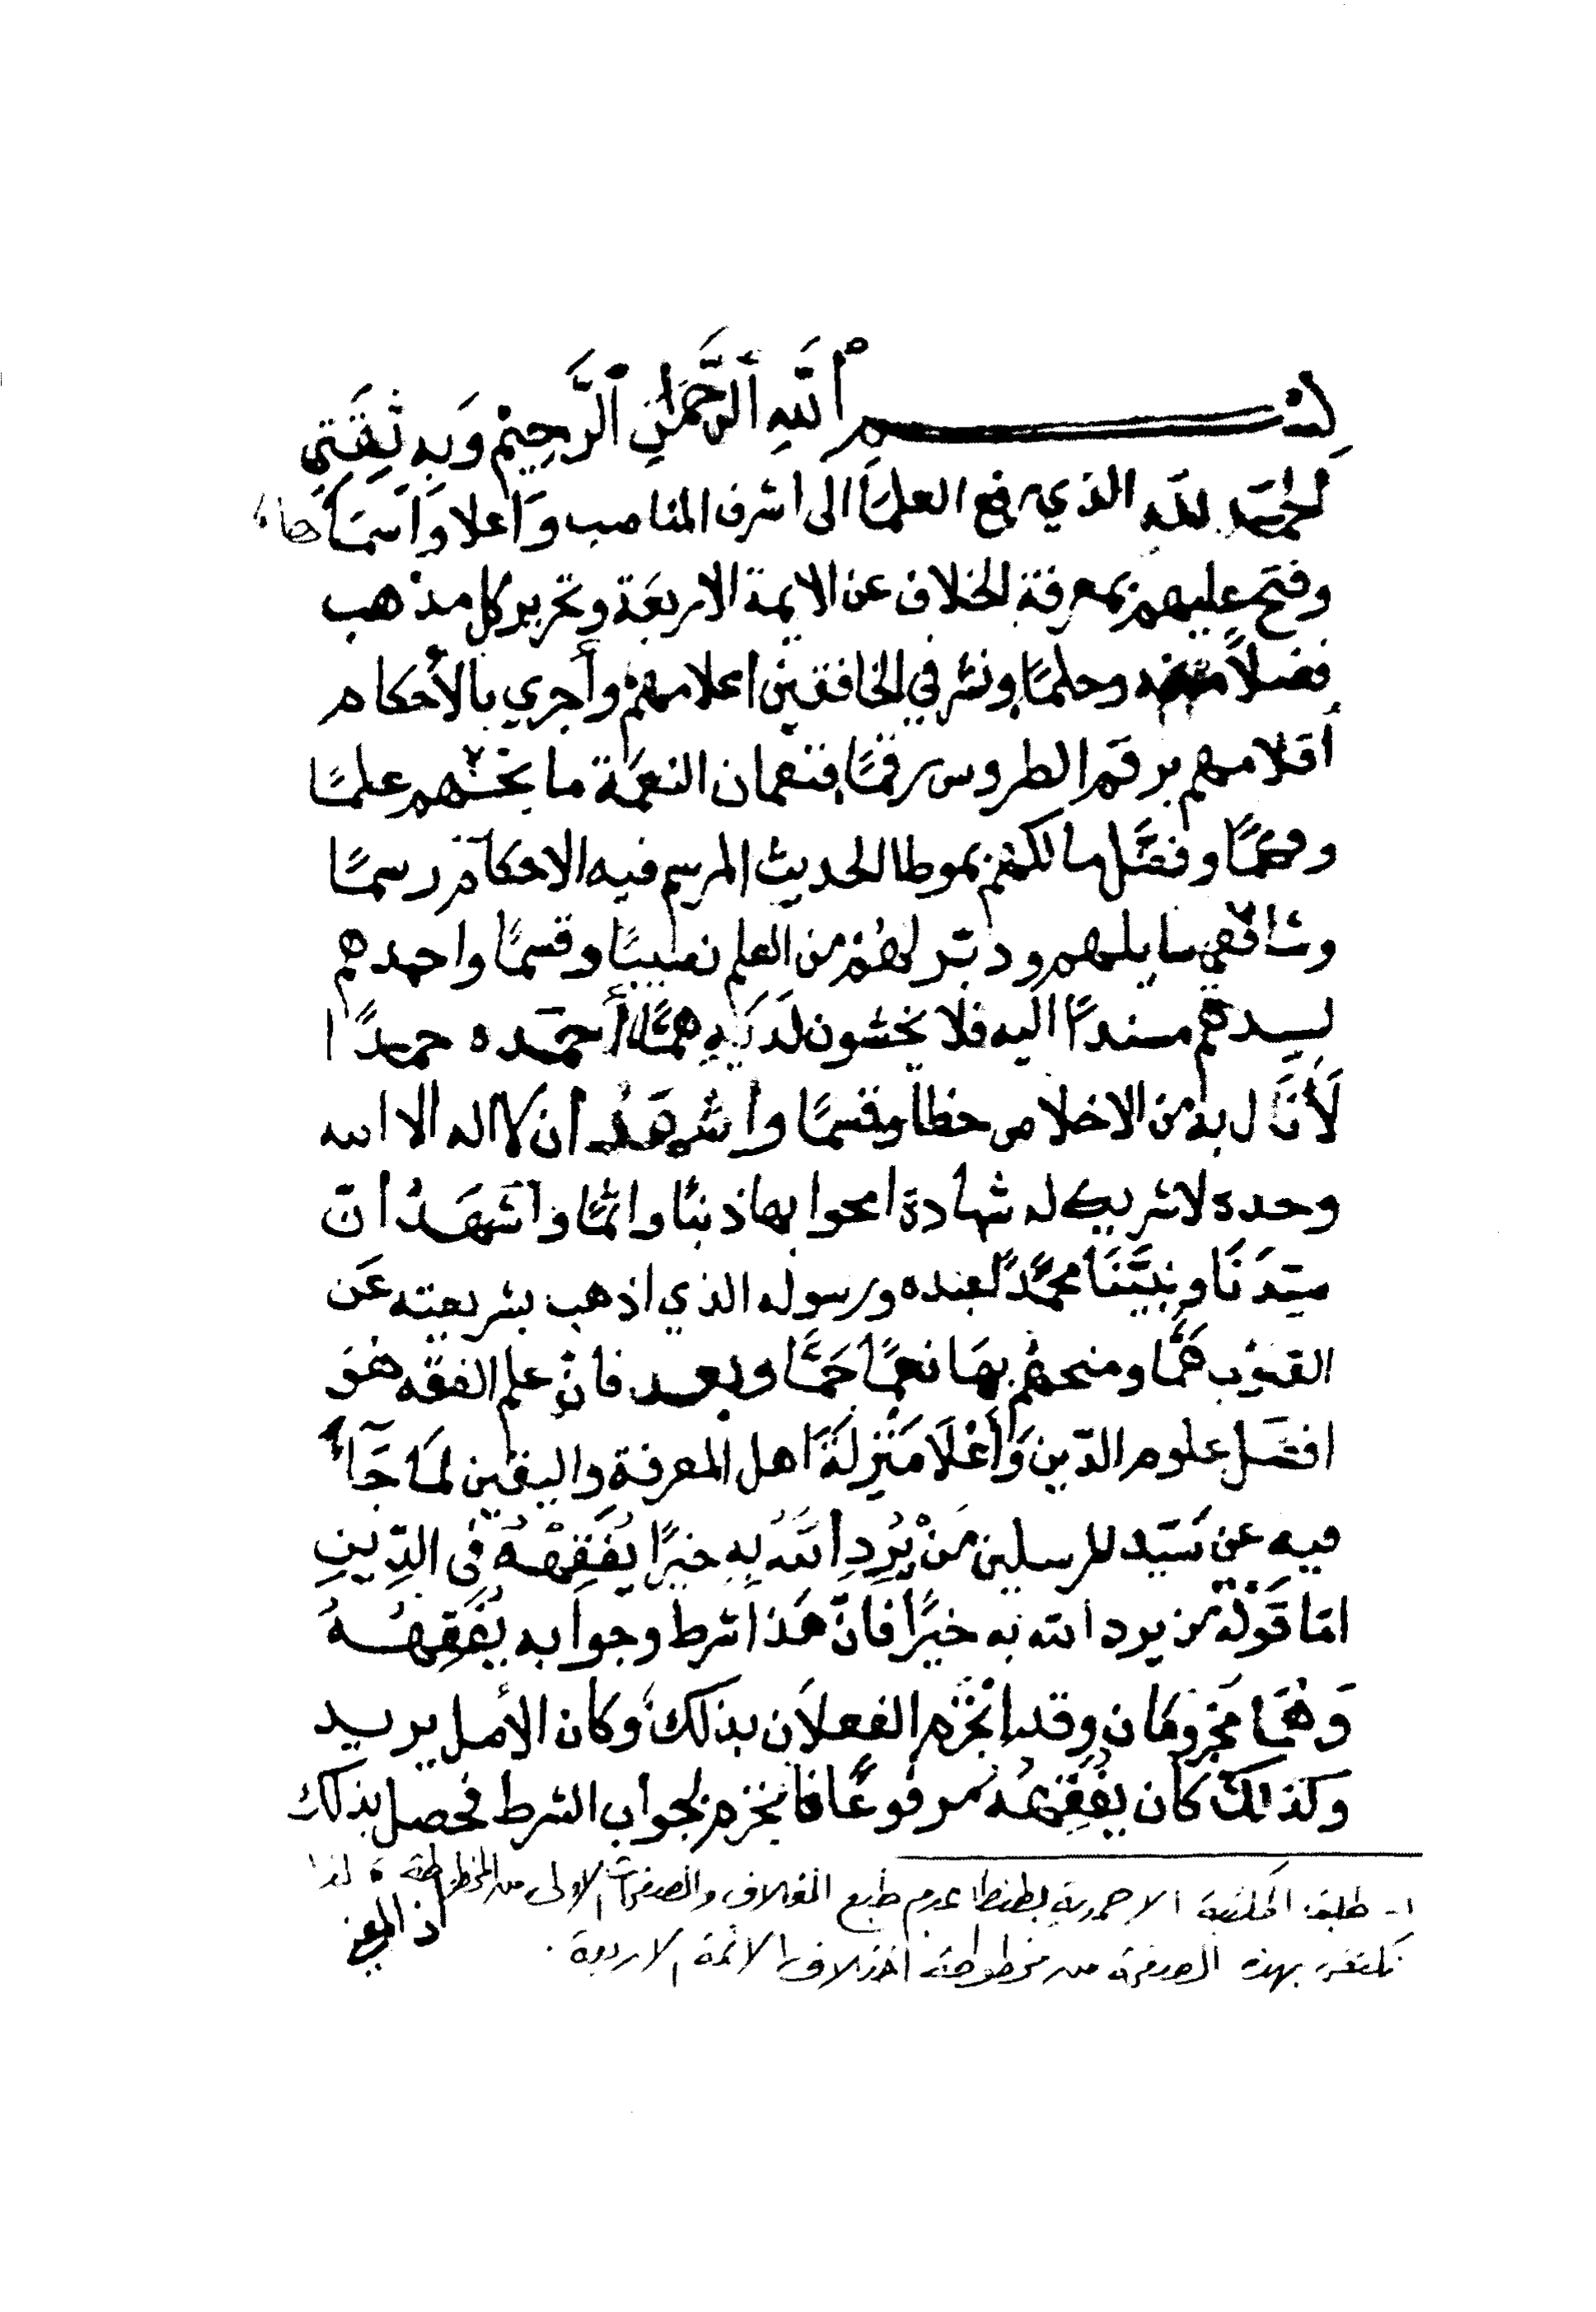 بسم اللهِ الرَّحمَنِ الرَّحِيْمِ وَبِهِ ثِقَتِي
الحمد لله الذي رفع العلمَاَ الى اشرف المناصب وَاعلا وَاَسمَا
وفتح عليهم بمعرفة الخلاف عن الايمة الاربعَة وتحرير كل مذهب
فضلاً منه وحلمًا ونشر في الخافقين اعلامهمْ وأجري بالأحكام
أقلامهم برقم الطروس رقمًا فنعمان النعمَة ما بخسهم علمًا
وفهمًا وفضَّل مالكهم بموطا الحديث المرسم فيه الاحكام رسمًا
وشافعي سايلهم ودبّر لهُمْ من العلم نصيبًا وقسمًا واحمدهم
لسيدهم مسندًا اليه فلا يخشون لَدَيْهِ همًّا أحمَده حمدًا
لأنَال به من الاخلاص حظا وقسمًا وأشهَدُ أن لا اله الا الله
وحده لا شريك له شهادة امحوا بها ذنبًا واثمًا وَاَشهَدُ انّ
سيّدَنَا ونبيَّنَا محمَّدًا عبده ورسوله الذي اذهب بشريعته عَن
القلوب همًّا ومنحهُم بهَا نعمًا جَمًّا وبعد فانّ علم الفقه هُوَ
افضَل علوم الدّين وَأَعْلَا مَنْزِلَةً اهل المعرفة واليقين لمَا جَآءَ
فيه عن سَيّد المرسلين مَنْ يُرِدِ اللهُ بِهِ خيرًا يُفَقِهْهُ في الدِّينِ
امّا قَوْلهُ من يرد الله به خيرًا فانّ هَذا شرط وجوابه يُفَقِهْهُ
وَهُمَا مجزومَان وقد انْجَزم الفعلاَن بذلك وَكان الأصل يريد
وكذلكَ كان يُفَقِهُهُ مرفوعًا فانجزم لجواب الشرط فحصل بذلك
اذ المعني
١- طلبت المكتبة الاحمدية بطنطا عدم طبع الغلاف والصفحات الاولى من المخطوطة، لذا
نكتفى بهذه الصفحة من مخطوطة اختلاف الائمة الاربعة .